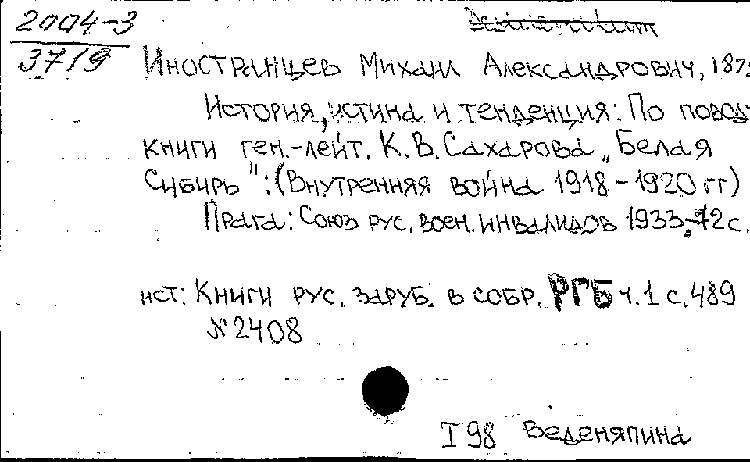 2004-3
3719
Иностранцев Михаил Александрович, 187
История, истина и тенденция: По повод
книги ген.-лейт. К.В. Сахарова „Белая
Сибирь": (Внутренняя война 1918-1920 гг)
Прага: Союз рус. воен. инвалидов 1933.-72 с.
ист: Книги рус. заруб. в собр. РГБ ч.1 с.489
№2408
I 98 Веденяпина